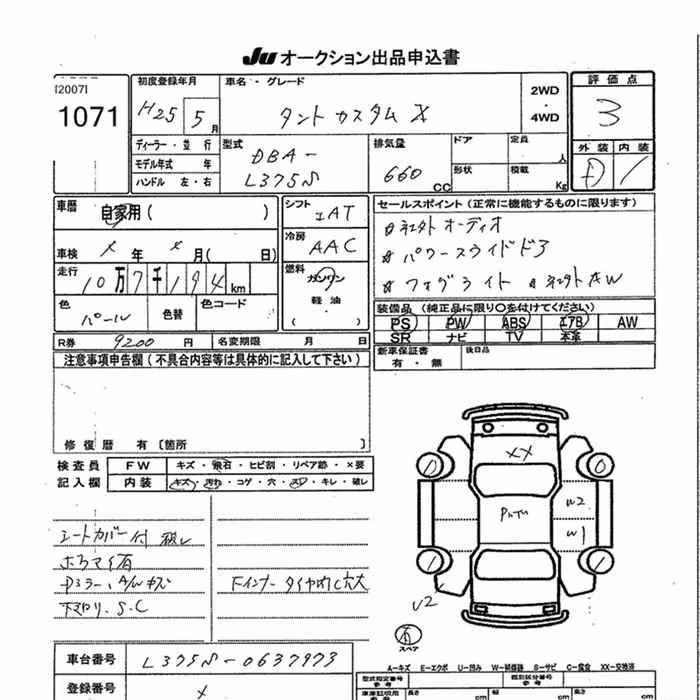 JU オークション出品申込書
[2007]
1071
初度登録年月
H25 5月
車名・グレード
タント カスタム X
2WD
・
4WD
評価点
3
外装 内装
D /
ディーラー・並行
モデル年式 年
ハンドル 左・右
型式
DBA-
L375S
排気量
660 CC
ドア
形状
定員 人
積載 Kg
車歴 自家用( )
車検 × 年 × 月( 日)
走行
10万7千194 km
色
パール
色替
色コード
シフト
IAT
冷房
AAC
燃料
ガソリン
軽油
( )
セールスポイント(正常に機能するものに限ります)
オーディオ
パワースライドドア
フォグライト AW
装備品(純正品に限り〇を付けてください)
PS PW ABS エアB AW
SR ナビ TV 本革
R券 9200 円
名変期限 月 日
新車保証書
有・無
後日品
注意事項申告欄(不具合内容等は具体的に記入して下さい)
修復歴 有[箇所 ]
検査員
記入欄
FW キズ・飛石・ヒビ割・リペア跡・×要
内装 キズ・汚れ・コゲ・穴・スレ・キレ・破レ
シートカバー付 破レ
ドアミラー、A/Wキズ
下マワリ、S.C
Fインナー タイヤハウス穴大
XX
W2
W1
U2
スペア
A-キズ E-エクボ U-凹み W-補修跡 S-サビ C-腐食 XX-交換済
車台番号 L375S-0637973
登録番号 ×
型式指定番号
参考
類別区分番号
参考
長さ cm
幅 cm
高さ cm